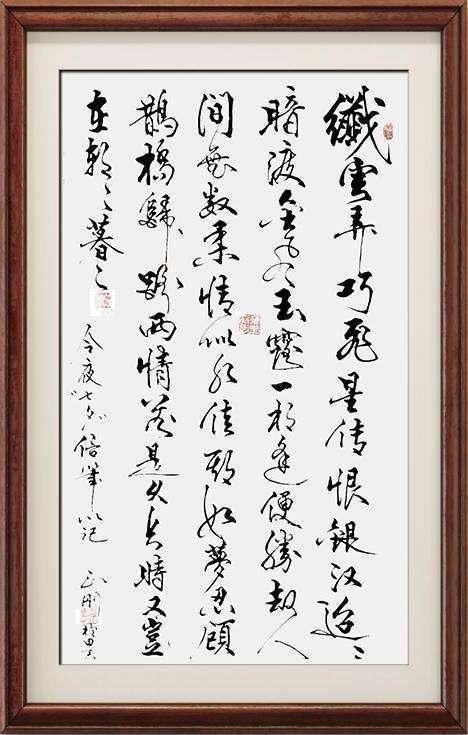 纖雲弄巧飛星传恨銀汉迢〻
暗渡金風玉露一相逢便勝却人
間無数柔情似水佳期如夢忍顧
鵲橋歸路两情若是久長時又豈
在朝〻暮〻
今夜七夕筆以记